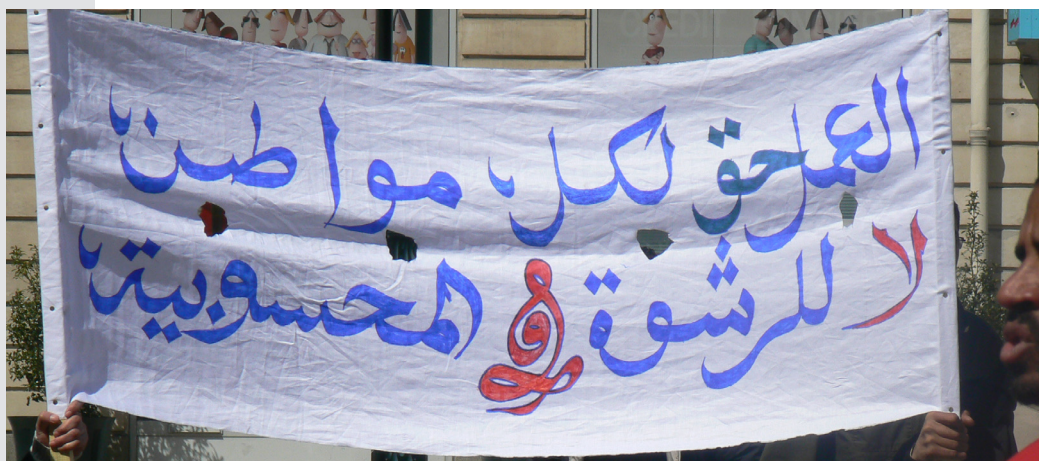 العمل حق لكل مواطن
لا للرشوة و المحسوبية